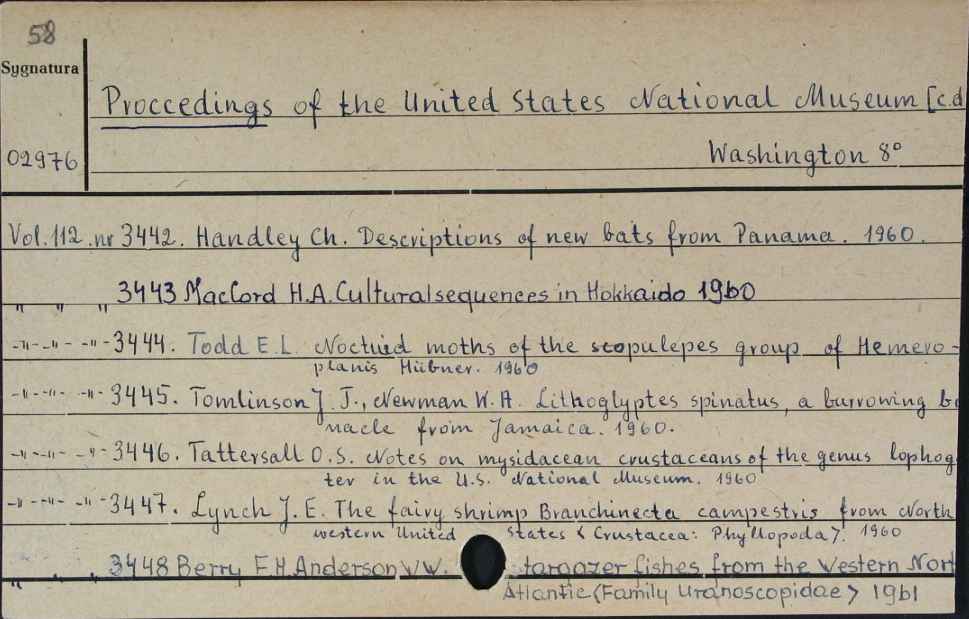 58
Sygnatura
Proccedings of the United States National Museum [c.d
02976
Washington 8°
Vol. 112. nr 3442. Handley Ch. Descriptions of new bats from Panama. 1960.
" " " 3443 MacCord H.A. Cultural sequences in Hokkaido 1960
-"- -"- -"- 3444. Todd E.L. Noctuid moths of the scopulepes group of Hemero-
planis Hübner. 1960
-"- -"- -"- 3445. Tomlinson J. J., Newman W.A. Lithoglyptes spinatus, a burrowing b
nacle from Jamaica. 1960.
-"- -"- -"- 3446. Tattersall O.S. Notes on mysidacean crustaceans of the genus lophog
ter in the U.S. National Museum. 1960
-"- -"- -"- 3447. Lynch J.E. The fairy shrimp Branchinecta campestris from North
western United States < Crustacea: Phyllopoda >. 1960
" " " 3448 Berry F.H. Anderson W.W. targazer fishes from the Western Nort
Atlantic (Family Uranoscopidae > 1961